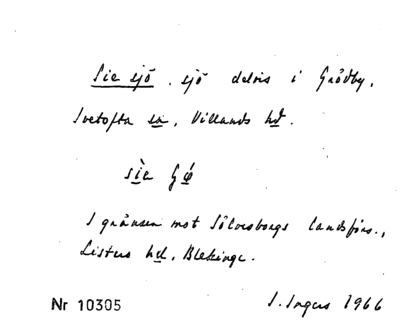 Sie sjö, sjö delvis i Grödby,
Ivetofta sn, Villands hd.
I gränsen mot Sölvesborgs landsförs.,
Listers hd, Blekinge.
Nr 10305
I. Ingers 1966